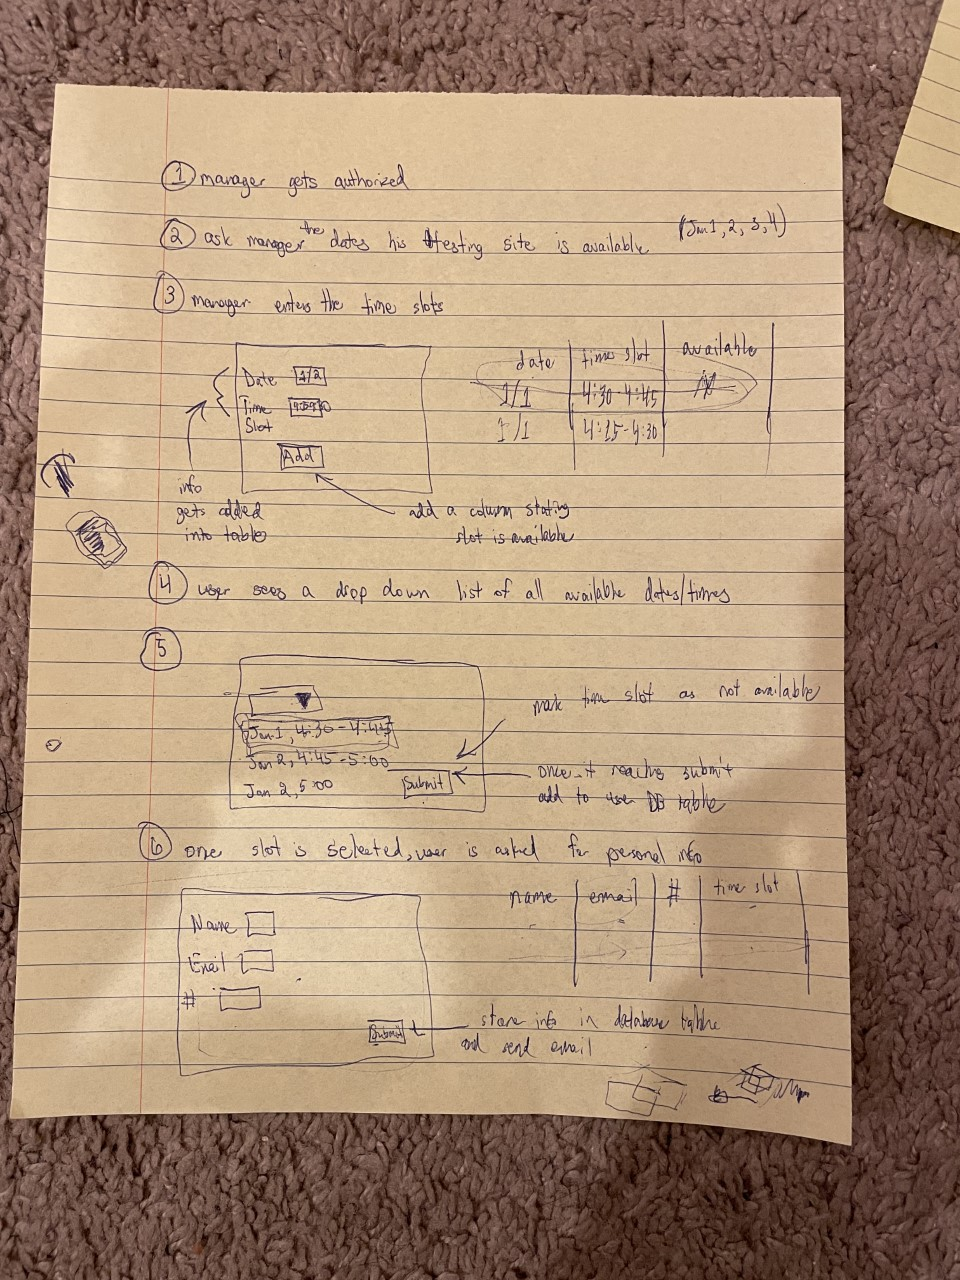 1 manager gets authorized
2 ask manager the dates his testing site is available (Jan 1, 2, 3, 4)
3 manager enters the time slots
Date 1/2
Time
Slot
Add
date time slot available
1/1 4:30-4:45
1/1 4:15-4:30
info
gets added
into table
add a column stating
slot is available
4 user sees a drop down list of all available dates/times
5
Jan 1, 4:30-4:45
Jan 2, 4:45-5:00
Jan 2, 5:00
Submit
mark time slot as not available
once it reaches submit
add to user DB table
6 one slot is selected, user is asked for personal info
Name
Email
#
Submit
name email # time slot
store info in database table
and send email